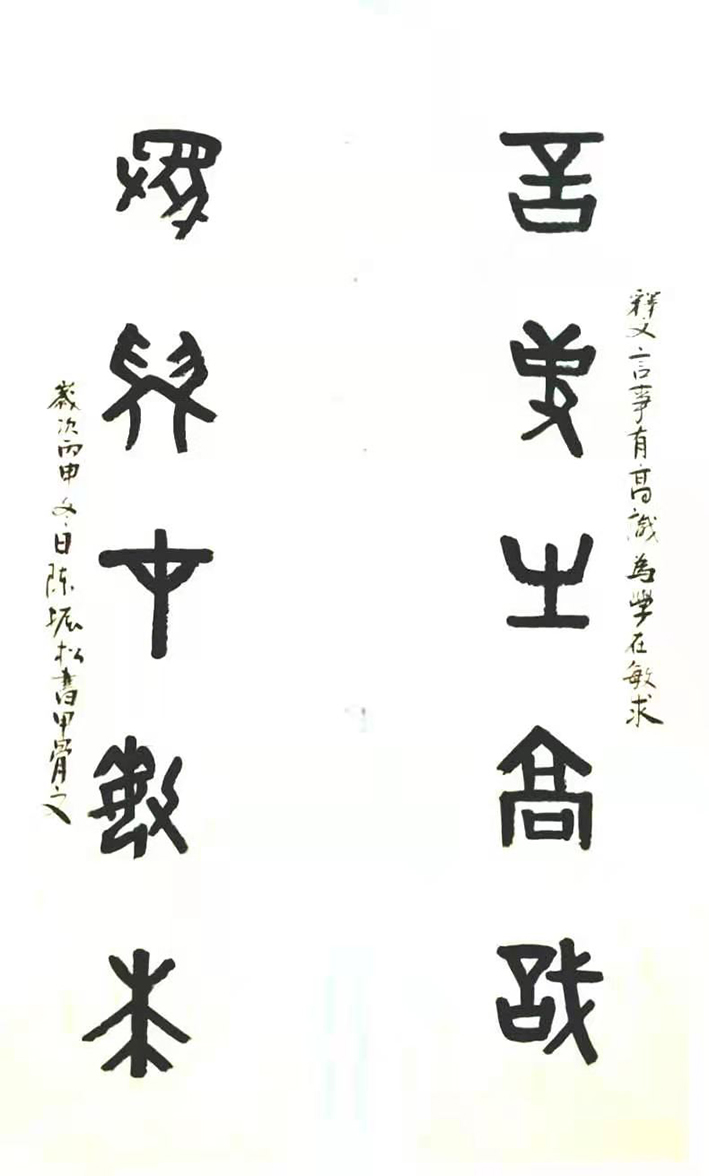 言事有高識
釋文言事有高識為學在敏求
為學在敏求
歲次丙申冬日陈振松書甲骨文